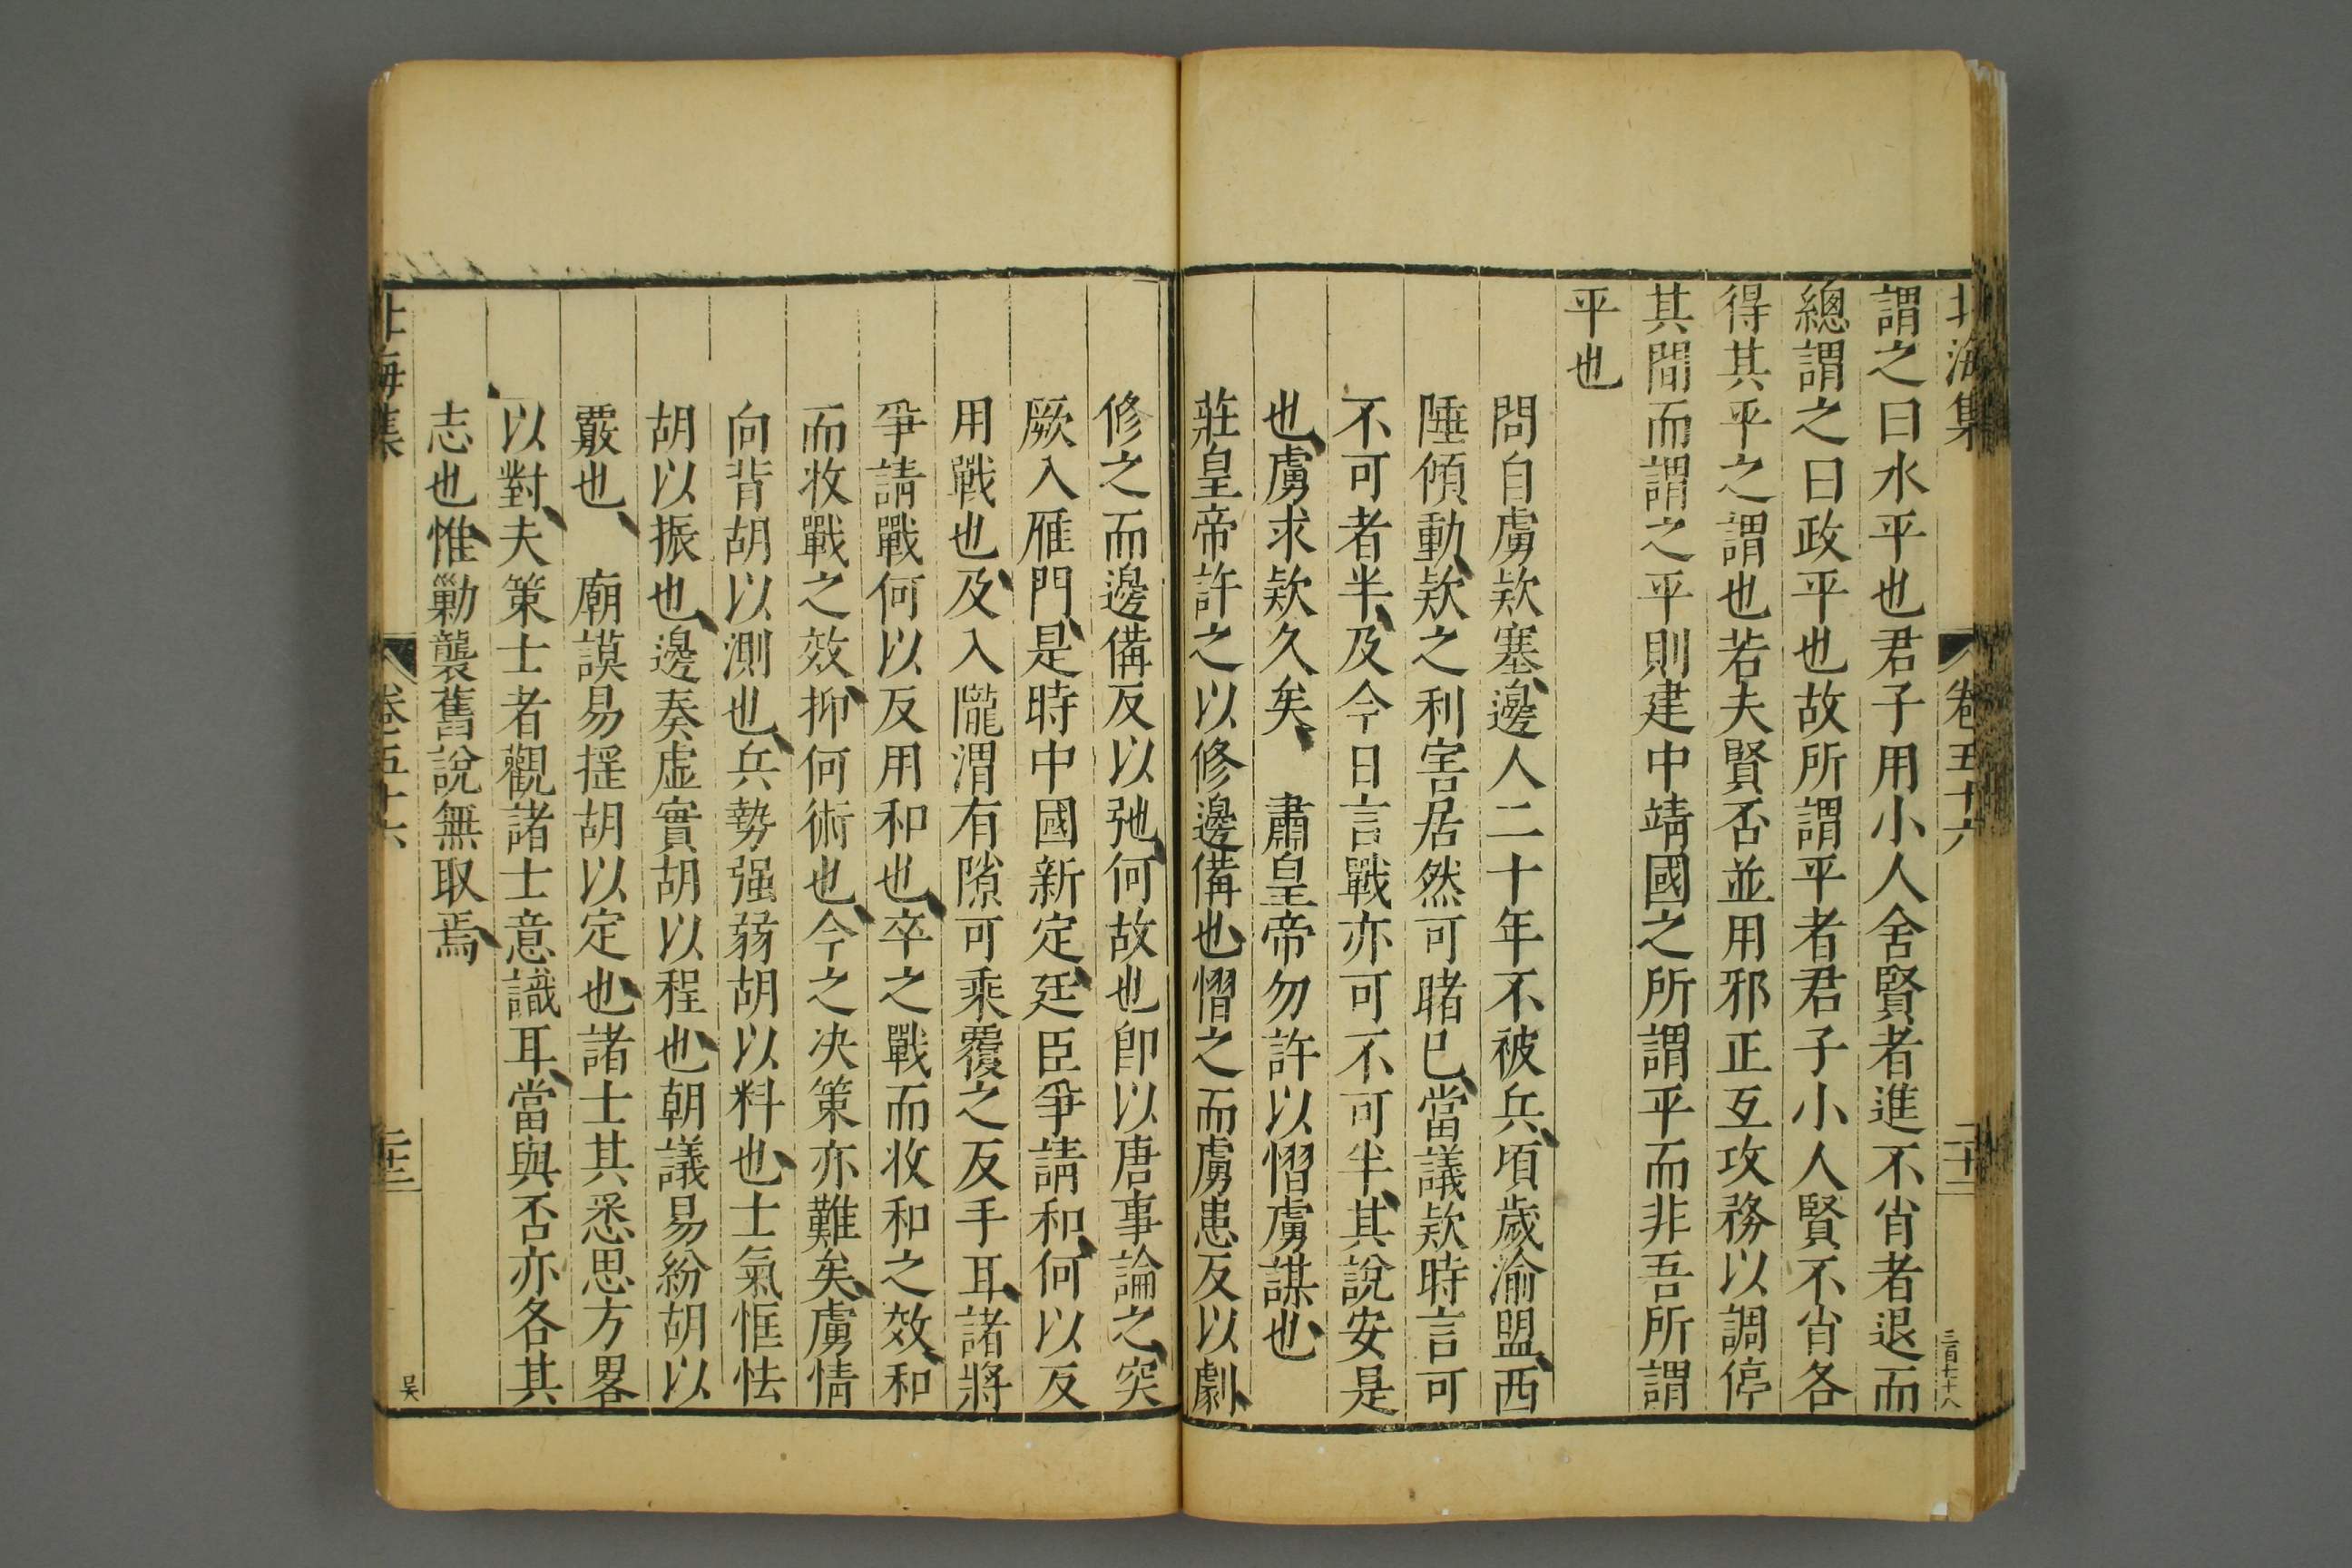 北海集 卷五十六 二十二 三百七十八
謂之曰水平也君子用小人舍賢者進不肖者退而
總謂之曰政平也故所謂平者君子小人賢不肖各
得其平之謂也若夫賢否並用邪正互攻務以調停
其間而謂之平則建中靖國之所謂平而非吾所謂
平也
問自虜欵塞邊人二十年不被兵頃歲渝盟西
陲傾動欵之利害居然可睹已當議欵時言可
不可者半及今日言戰亦可不可半其說安是
也虜求欵久矣 肅皇帝勿許以慴虜謀也
莊皇帝許之以修邊備也慴之而虜患反以劇
修之而邊備反以弛何故也卽以唐事論之突
厥入雁門是時中國新定廷臣爭請和何以反
用戰也及入隴渭有隙可乘覆之反手耳諸將
爭請戰何以反用和也卒之戰而收和之效和
而收戰之效抑何術也今之决策亦難矣虜情
向背胡以測也兵勢强弱胡以料也士氣恇怯
胡以振也邊奏虛實胡以程也朝議易紛胡以
覈也 廟謨易揺胡以定也諸士其悉思方畧
以對夫策士者觀諸士意識耳當與否亦各其
志也惟勦襲舊說無取焉
北海集 卷五十六 二十二 吴